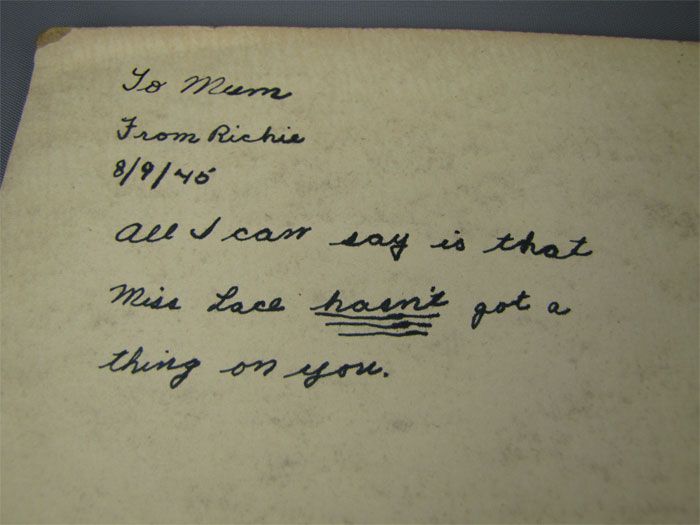 To Mum
From Richie
8/9/45
All I can say is that
Miss Lace hasn't got a
thing on you.